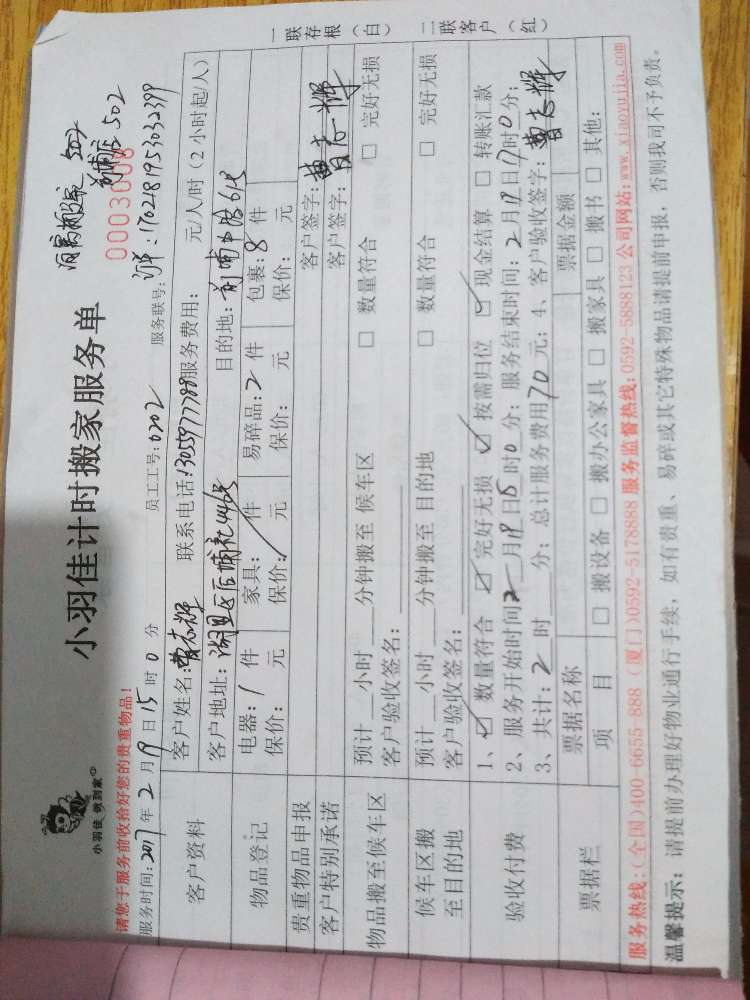 小羽佳 做到家
小羽佳计时搬家服务单
502
502
0003008
请您于服务前收拾好您的贵重物品！
服务时间：2017年2月19日15时0分 员工工号：0202 服务联号：
客户资料
客户姓名：曹志辉 联系电话：13055977788 服务费用： 元/人/时（2小时起/人）
客户地址： 目的地：
物品登记
电器：1件 家具：件 易碎品：2件 包裹：8件
保价：元 保价：元 保价：元 保价：元
贵重物品申报 客户签字：
客户特别承诺 客户签字：曹志辉
物品搬至候车区
预计__小时__分钟搬至 候车区 □ 数量符合 □ 完好无损
客户验收签名：
候车区搬至目的地
预计__小时__分钟搬至 目的地 □ 数量符合 □ 完好无损
客户验收签名：
验收付费
1、☑ 数量符合 ☑ 完好无损 ☑ 按需归位 ☑ 现金结算 □ 转账汇款
2、服务开始时间：2月19日15时0分；服务结束时间：2月19日17时0分；
3、共计：2时__分；总计服务费用70元；4、客户验收签字：曹志辉
票据栏
票据名称 票据金额
项目 □ 搬设备 □ 搬办公家具 □ 搬家具 □ 搬书 □ 其他：
服务热线：(全国)400-6655-888 (厦门)0592-5178888 服务监督热线：0592-5888123 公司网站：www.xiaoyujia.com
温馨提示：请提前办理好物业通行手续，如有贵重、易碎或其它特殊物品请提前申报，否则我司不予负责。
一联存根（白） 二联客户（红）